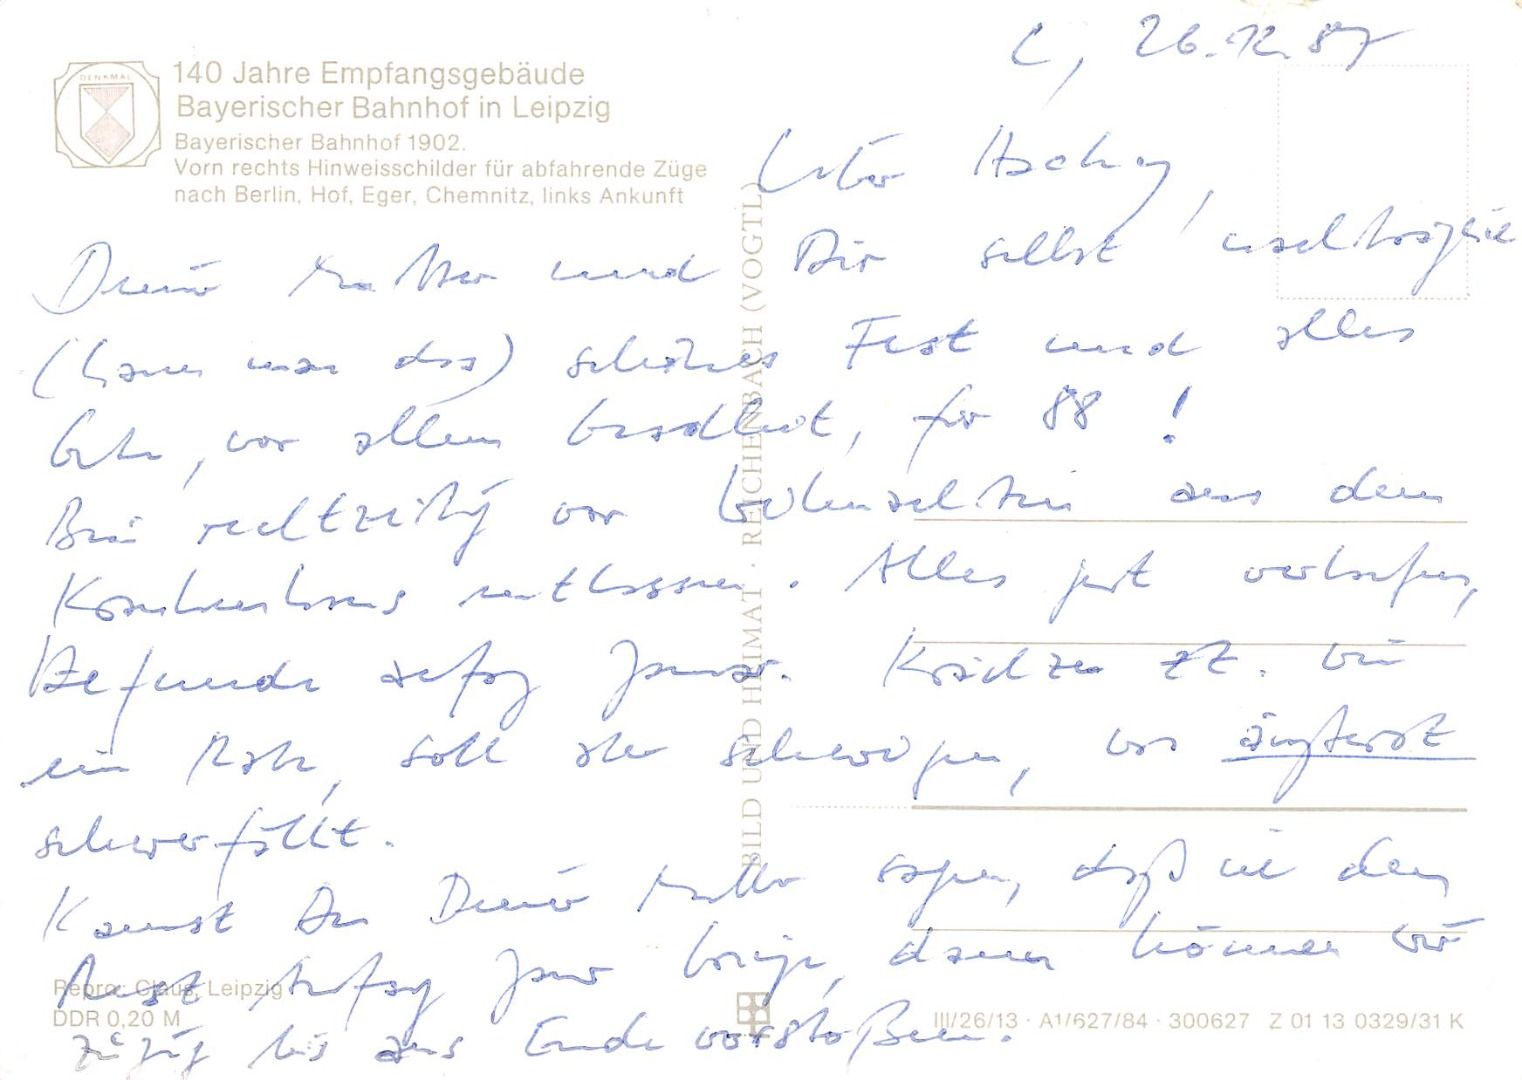 L, 26.12.87
DENKMAL
140 Jahre Empfangsgebäude
Bayerischer Bahnhof in Leipzig
Bayerischer Bahnhof 1902.
Vorn rechts Hinweisschilder für abfahrende Züge
nach Berlin, Hof, Eger, Chemnitz, links Ankunft
Lieber
Deiner Mutter und Dir selbst nachträglich
(kann man das) schönes Fest und alles
Gute, vor allem Gesundheit, für 88!
Bin rechtzeitig vor Weihnachten aus dem
Krankenhaus entlassen. Alles gut verlaufen,
Befunde Anfang Januar. Krächze zt. wie
ein Rabe, soll aber schweigen, was äußerst
schwerfällt.
Kannst Du Deiner Mutter sagen, daß ich den
Rest Anfang Januar bringe, dann können wir
zügig bis ans Ende vorstoßen.
Repro: Claus, Leipzig
DDR 0,20 M
BILD UND HEIMAT REICHENBACH (VOGTL)
III/26/13 · A1/627/84 · 300627 Z 01 13 0329/31 K